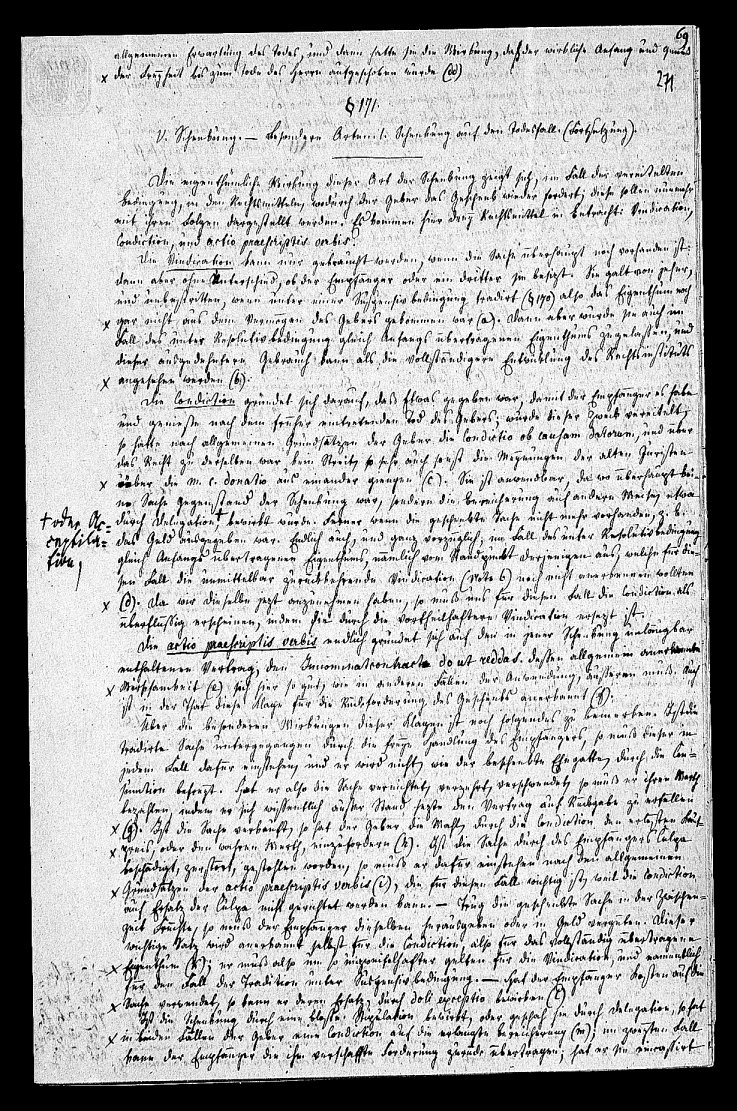 69
271
allgemeinen Erwartung des Todes, und dann hatte sie die Wirkung, daß der wirkliche Anfang und Genuß
x der Freyheit bis zum Tode des Herrn aufgeschoben wurde (dd)
§ 171.
V. Schenkung. — Besondere Arten: 1. Schenkung auf den Todesfall. (Fortsetzung).
Die eigenthümliche Wirkung dieser Art der Schenkung zeigt sich, im Fall der vereitelten
Bedingung, in den Rechtsmitteln, wodurch der Geber das Geschenk wieder fordert; diese sollen nunmehr
mit ihren Folgen dargestellt werden. Es kommen hier drey Rechtsmittel in Betracht: Vindication,
Condiction, und actio praescriptis verbis.
Die Vindication kann nur gebraucht werden, wenn die Sache überhaupt noch vorhanden ist:
dann aber ohne Unterschied, ob der Empfänger oder ein dritter sie besitzt. Sie galt von jeher,
und unbestritten, wenn unter einer Suspensivbedingung tradirt (§ 170) also das Eigenthum noch
x gar nicht aus dem Vermögen des Gebers gekommen war (a). Dann aber wurde sie auch im
Fall des unter Resolutivbedingung gleich Anfangs übertragenen Eigenthums zugelassen, und
dieser ausgedehntere Gebrauch kann als die vollständigere Entwicklung des Rechtsinstituts
x angesehen werden (b).
Die Condiction gründet sich darauf, daß Etwas gegeben war, damit der Empfänger es habe
und genieße nach dem früher eintretenden Tod des Gebers; wurde dieser Zweck vereitelt,
so hatte nach allgemeinen Grundsätzen der Geber die Condictio ob causam datorum, und über
das Recht zu derselben war kein Streit, so sehr auch sonst die Meynungen der alten Juristen
x über die m. c. donatio aus einander giengen (c). Sie ist anwendbar, da wo überhaupt kei-
ne Sache Gegenstand der Schenkung war, sondern die Bereicherung auf andere Weise, etwa
durch Delegation + bewirkt wurde. Ferner wenn die geschenkte Sache nicht mehr vorhanden, z. B.
+ oder Ac-
ceptila-
tion,
das Geld ausgegeben war. Endlich auch, und ganz vorzüglich, im Fall des unter Resolutivbedingung
gleich Anfangs übertragenen Eigenthums, nämlich vom Standpunct derjenigen aus, welche für die-
sen Fall die unmittelbar zurückkehrende Vindication (Note b) noch nicht anerkennen wollten
x (d). Da wir dieselbe jetzt anzunehmen haben, so muß uns für diesen Fall die Condiction als
überflüssig erscheinen, indem sie durch die vortheilhaftere Vindication ersetzt ist.
Die actio praescriptis verbis endlich gründet sich auf den in jener Schenkung unläugbar
enthaltenen Vertrag, den Innominatcontract do ut reddas, dessen allgemein anerkannte
x Wirksamkeit (e) sich hier so gut, wie in anderen Fällen der Anwendung, äußeren muß. Auch
ist in der That diese Klage für die Rückforderung des Geschenks anerkannt (f).
Über die besonderen Wirkungen dieser Klagen ist noch folgendes zu bemerken. Ist die
tradirte Sache untergegangen durch die freye Handlung des Empfängers, so muß dieser in
jedem Fall dafür einstehen, und er wird nicht, wie der beschenkte Ehegatte, durch die Con-
sumtion befreyt. Hat er also die Sache vernichtet, verzehrt, verschwendet, so muß er ihren Werth
bezahlen, indem er sich wissentlich außer Stand setzte den Vertrag auf Rückgabe zu erfüllen
x (g). Ist die Sache verkauft, so hat der Geber die Wahl, durch die Condiction den erlösten Kauf-
x preis, oder den wahren Werth, einzufordern (h). Ist die Sache durch des Empfängers Culpa
beschädigt, zerstört, gestohlen worden, so muß er dafür einstehen nach den allgemeinen
x Grundsätzen der actio praescriptis verbis (i), die für diesen Fall wichtig ist, weil die Condiction
auf Ersatz der Culpa nicht gerichtet werden kann. — Trug die geschenkte Sache in der Zwischen-
zeit Früchte, so muß der Empfänger dieselben herausgeben oder in Geld vergüten. Dieser
wichtige Satz wird anerkannt selbst für die Condiction, also für das vollständig übertragene
x Eigenthum (k); er muß also um so unzweifelhafter gelten für die Vindication, und namentlich
für den Fall der Tradition unter Suspensivbedingung. — Hat der Empfänger Kosten auf die
x Sache verwendet, so kann er deren Ersatz durch doli exceptio bewirken (l)
Ist die Schenkung durch eine bloße Stipulation bewirkt, oder geschah sie durch Delegation, so hat
x in beiden Fällen der Geber eine Condiction auf die erlangte Bereicherung (m); im zweyten Fall
kann der Empfänger die ihm verschaffte Forderung zurück übertragen; hat er sie eincassirt